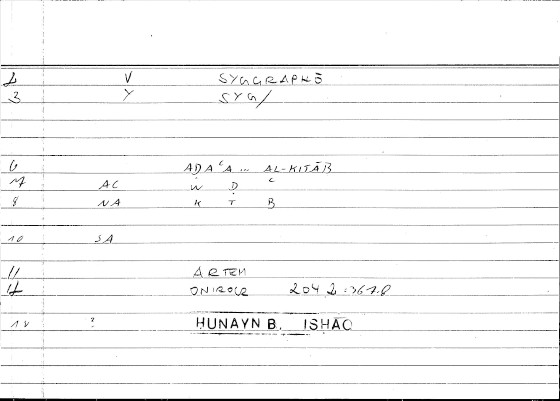 2 V SYGGRAPHĒ
3 Y SYG/
6 AḌAʿA ... AL-KITĀB
7 AC W Ḍ ʿ
8 NA K T B
10 SA
11 ARTEM
12 ONIROCR 204
14 ? HUNAYN B. ISHAQ